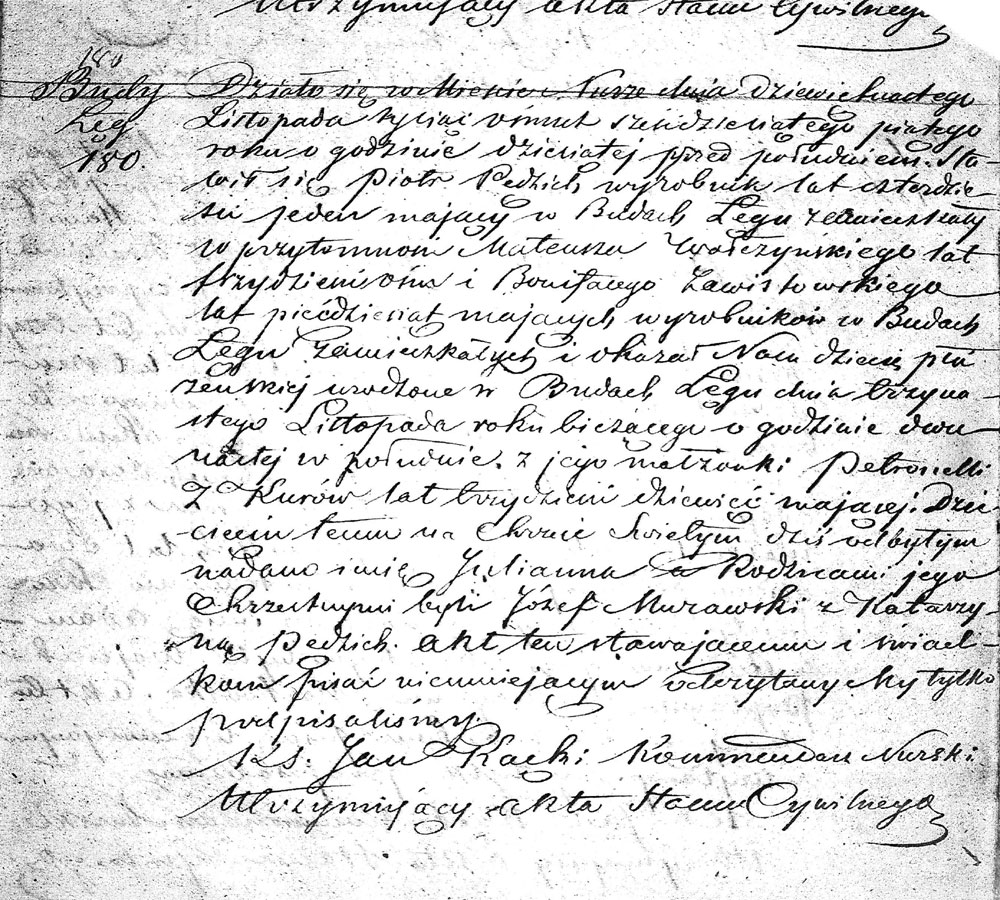 Utrzymujący akta Stanu Cywilnego
180
Budy
Łęg
180.
Działo się w Mieście Nurze dnia dziewietnastego
Listopada tysiąc ośmset sześćdziesiątego piątego
roku o godzinie dziesiątej przed południem. Sta-
wił się Piotr Pedzich wyrobnik lat czterdzie-
ści jeden mający w Budach Łęgu zamieszkały
w przytomności Mateusza Wołczyńskiego lat
trzydzieści ośm i Bonifacego Zawistowskiego
lat pięćdziesiąt mających wyrobników w Budach
Łęgu zamieszkałych i okazał Nam dziecię płci
żeńskiej urodzone w Budach Łęgu dnia trzyna-
stego Listopada roku bieżącego o godzinie dwu-
nastej w południe. z jego małżonki Petronelli
z Kurów lat trzydzieści dziewięć mającej. Dzie-
cięciu temu na Chrzcie Świętym dziś odbytym
nadano imię Julianna a Rodzicami jego
Chrzestnymi byli Józef Murawski z Katarzy-
ną Pedzich. Akt ten stawającemu i świad-
kom pisać nieumiejącym odczytany My tylko
podpisaliśmy.
Ks. Jan Kącki Kommendarz Nurski
Utrzymujący akta Stanu Cywilnego